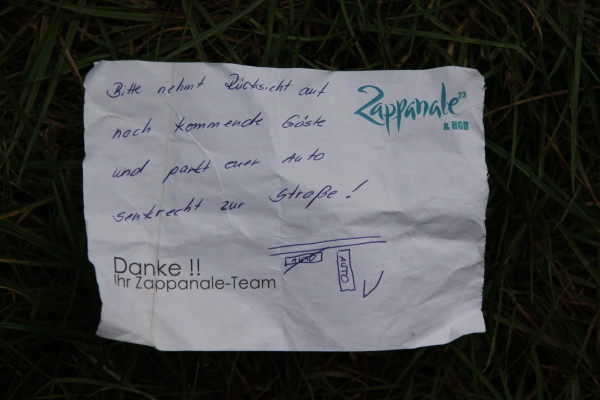 Bitte nehmt Rücksicht auf
noch kommende Gäste
und parkt euer Auto
senkrecht zur Straße!
Zappanale 23
& HGD
AUTO
AUTO
Danke !!
Ihr Zappanale-Team